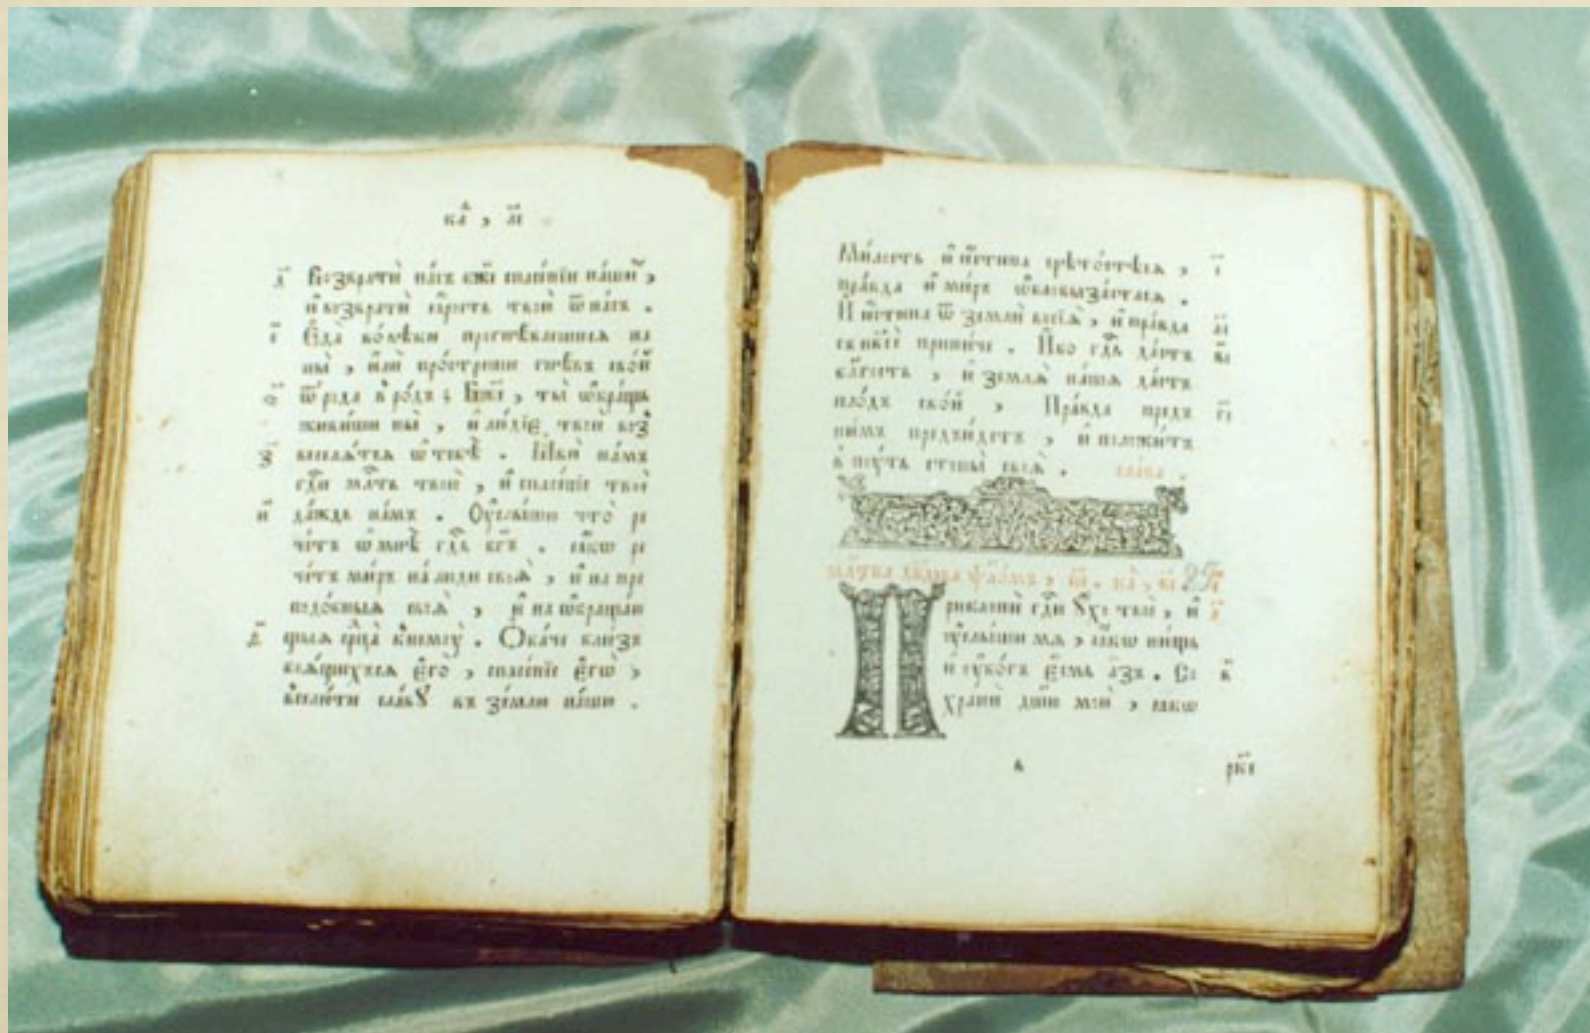 каⷴ , м҃
д҃ Возврати́ на́съ бж҃е спасе́нїи на́ши ,
и҆ возвратѝ ꙗ҆́рость твою̀ ѿ на́съ .
є҃ Е҆да̀ во́вѣки прогнѣ́ваешися на
ны̀ , и҆лѝ про́стреши гнѣ́въ сво́й
ѕ҃ ѿ ро́да в ро́дъ ; Бж҃е , ты̀ ѡ҆бра́щь
живи́ши ны̀ , и҆ лю́дїе твоѝ воз
з҃ веселѧ́тсѧ ѡ҆ тебѣ̀ . Ꙗ҆вѝ на́мъ
гд҇и мл҇ть твою̀ , и҆ спасе́нїе твоѐ
и҃ да́ждь на́мъ . Оу҆слы́шꙋ что̀ ре
че́тъ ѡ҆ мнѣ̀ гд҇ь бг҃ъ . ꙗ҆́кѡ ре
че́тъ ми́ръ на лю́ди своѧ̀ , и҆ на пре
подо́бныѧ своѧ̀ , и҆ на ѡ҆браща́ю
ѳ҃ щыѧ срⷣца̀ к нему̀ . Ѻ҆ба́че бли́зъ
боѧ́щихсѧ є҆го̀ , спасе́нїе є҆гѡ̀ ,
всели́ти сла́вꙋ въ зе́мли на́шей .
Ми́лость и҆ и҆́стина срѣто́стѣсѧ , і҃
пра́вда и҆ ми́ръ ѡ҆блобыза́стасѧ .
И҆́стина ѿ землѝ возсїѧ̀ , и҆ пра́вда а҃і
съ нб҃сѐ прини́че . И҆́бо гд҇ь да́стъ в҃і
бл҃гость , и҆ землѧ̀ на́ша да́стъ
пло́дъ сво́й , Пра́вда предъ г҃і
ни́мъ предъи́детъ , и҆ положи́тъ
в пу́ть стопы̀ своѧ̀ . сла́ва .
мл҃тва дв҃дꙋ ѱало́мъ , п҃є 25
Приклонѝ гд҇и ᲂу҆́хо твоѐ , и҆ а҃
ᲂу҆слы́ши мѧ , ꙗ҆́кѡ ни́щь
и҆ ᲂу҆бо́гъ є҆́смь а҆́зъ . Со в҃
хранѝ дш҃ꙋ мою̀ , ꙗ҆́кѡ
рк҃і